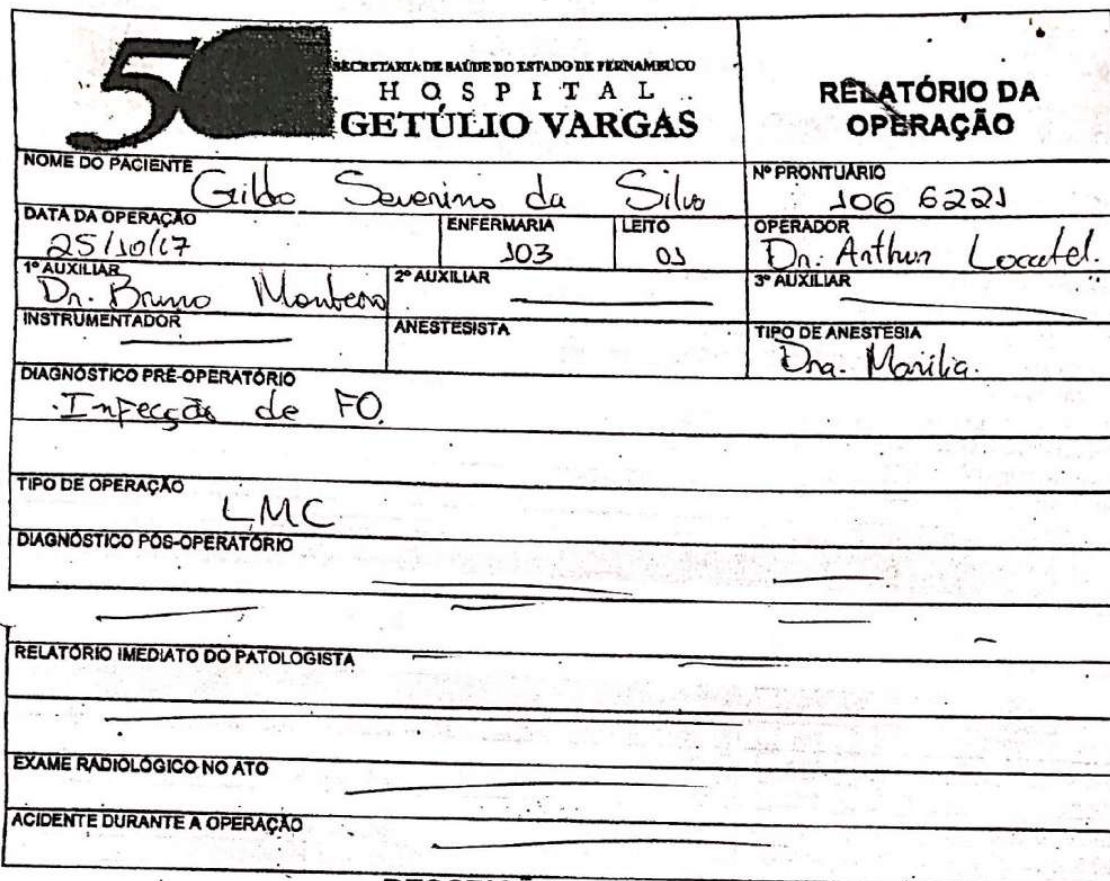 50
SECRETARIA DE SAÚDE DO ESTADO DE PERNAMBUCO
HOSPITAL
GETÚLIO VARGAS
RELATÓRIO DA
OPERAÇÃO
NOME DO PACIENTE
Gildo Severino da Silva
Nº PRONTUÁRIO
106 6221
DATA DA OPERAÇÃO
25/10/17
ENFERMARIA
103
LEITO
01
OPERADOR
Dr. Arthur Locatel.
1º AUXILIAR
Dr. Bruno Monteiro
2º AUXILIAR
3º AUXILIAR
INSTRUMENTADOR
ANESTESISTA
TIPO DE ANESTESIA
Dra. Marília.
DIAGNÓSTICO PRÉ-OPERATÓRIO
Infecção de FO.
TIPO DE OPERAÇÃO
LMC
DIAGNÓSTICO PÓS-OPERATÓRIO
RELATÓRIO IMEDIATO DO PATOLOGISTA
EXAME RADIOLÓGICO NO ATO
ACIDENTE DURANTE A OPERAÇÃO